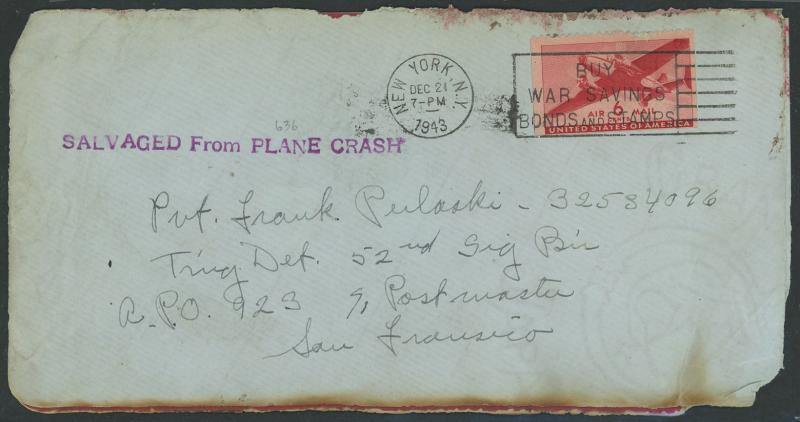 NEW YORK, N.Y.
DEC 21
7-PM
1943
BUY
WAR SAVINGS
BONDS AND STAMPS
6¢
AIR MAIL
UNITED STATES OF AMERICA
636
SALVAGED From PLANE CRASH
Pvt. Frank Pulaski - 32584096
Tr'ng Det. 52nd Sig Bn
A.P.O. 923 % Postmaster
San Fransico